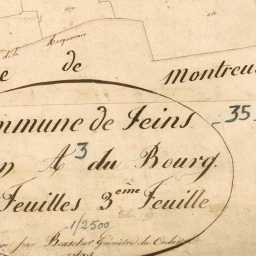 de la
e de Montreu
mmune de Feins
35
n A 3 du Bourg.
Feuilles 3ème Feuille
1/2500
par Géomètre du Cadas